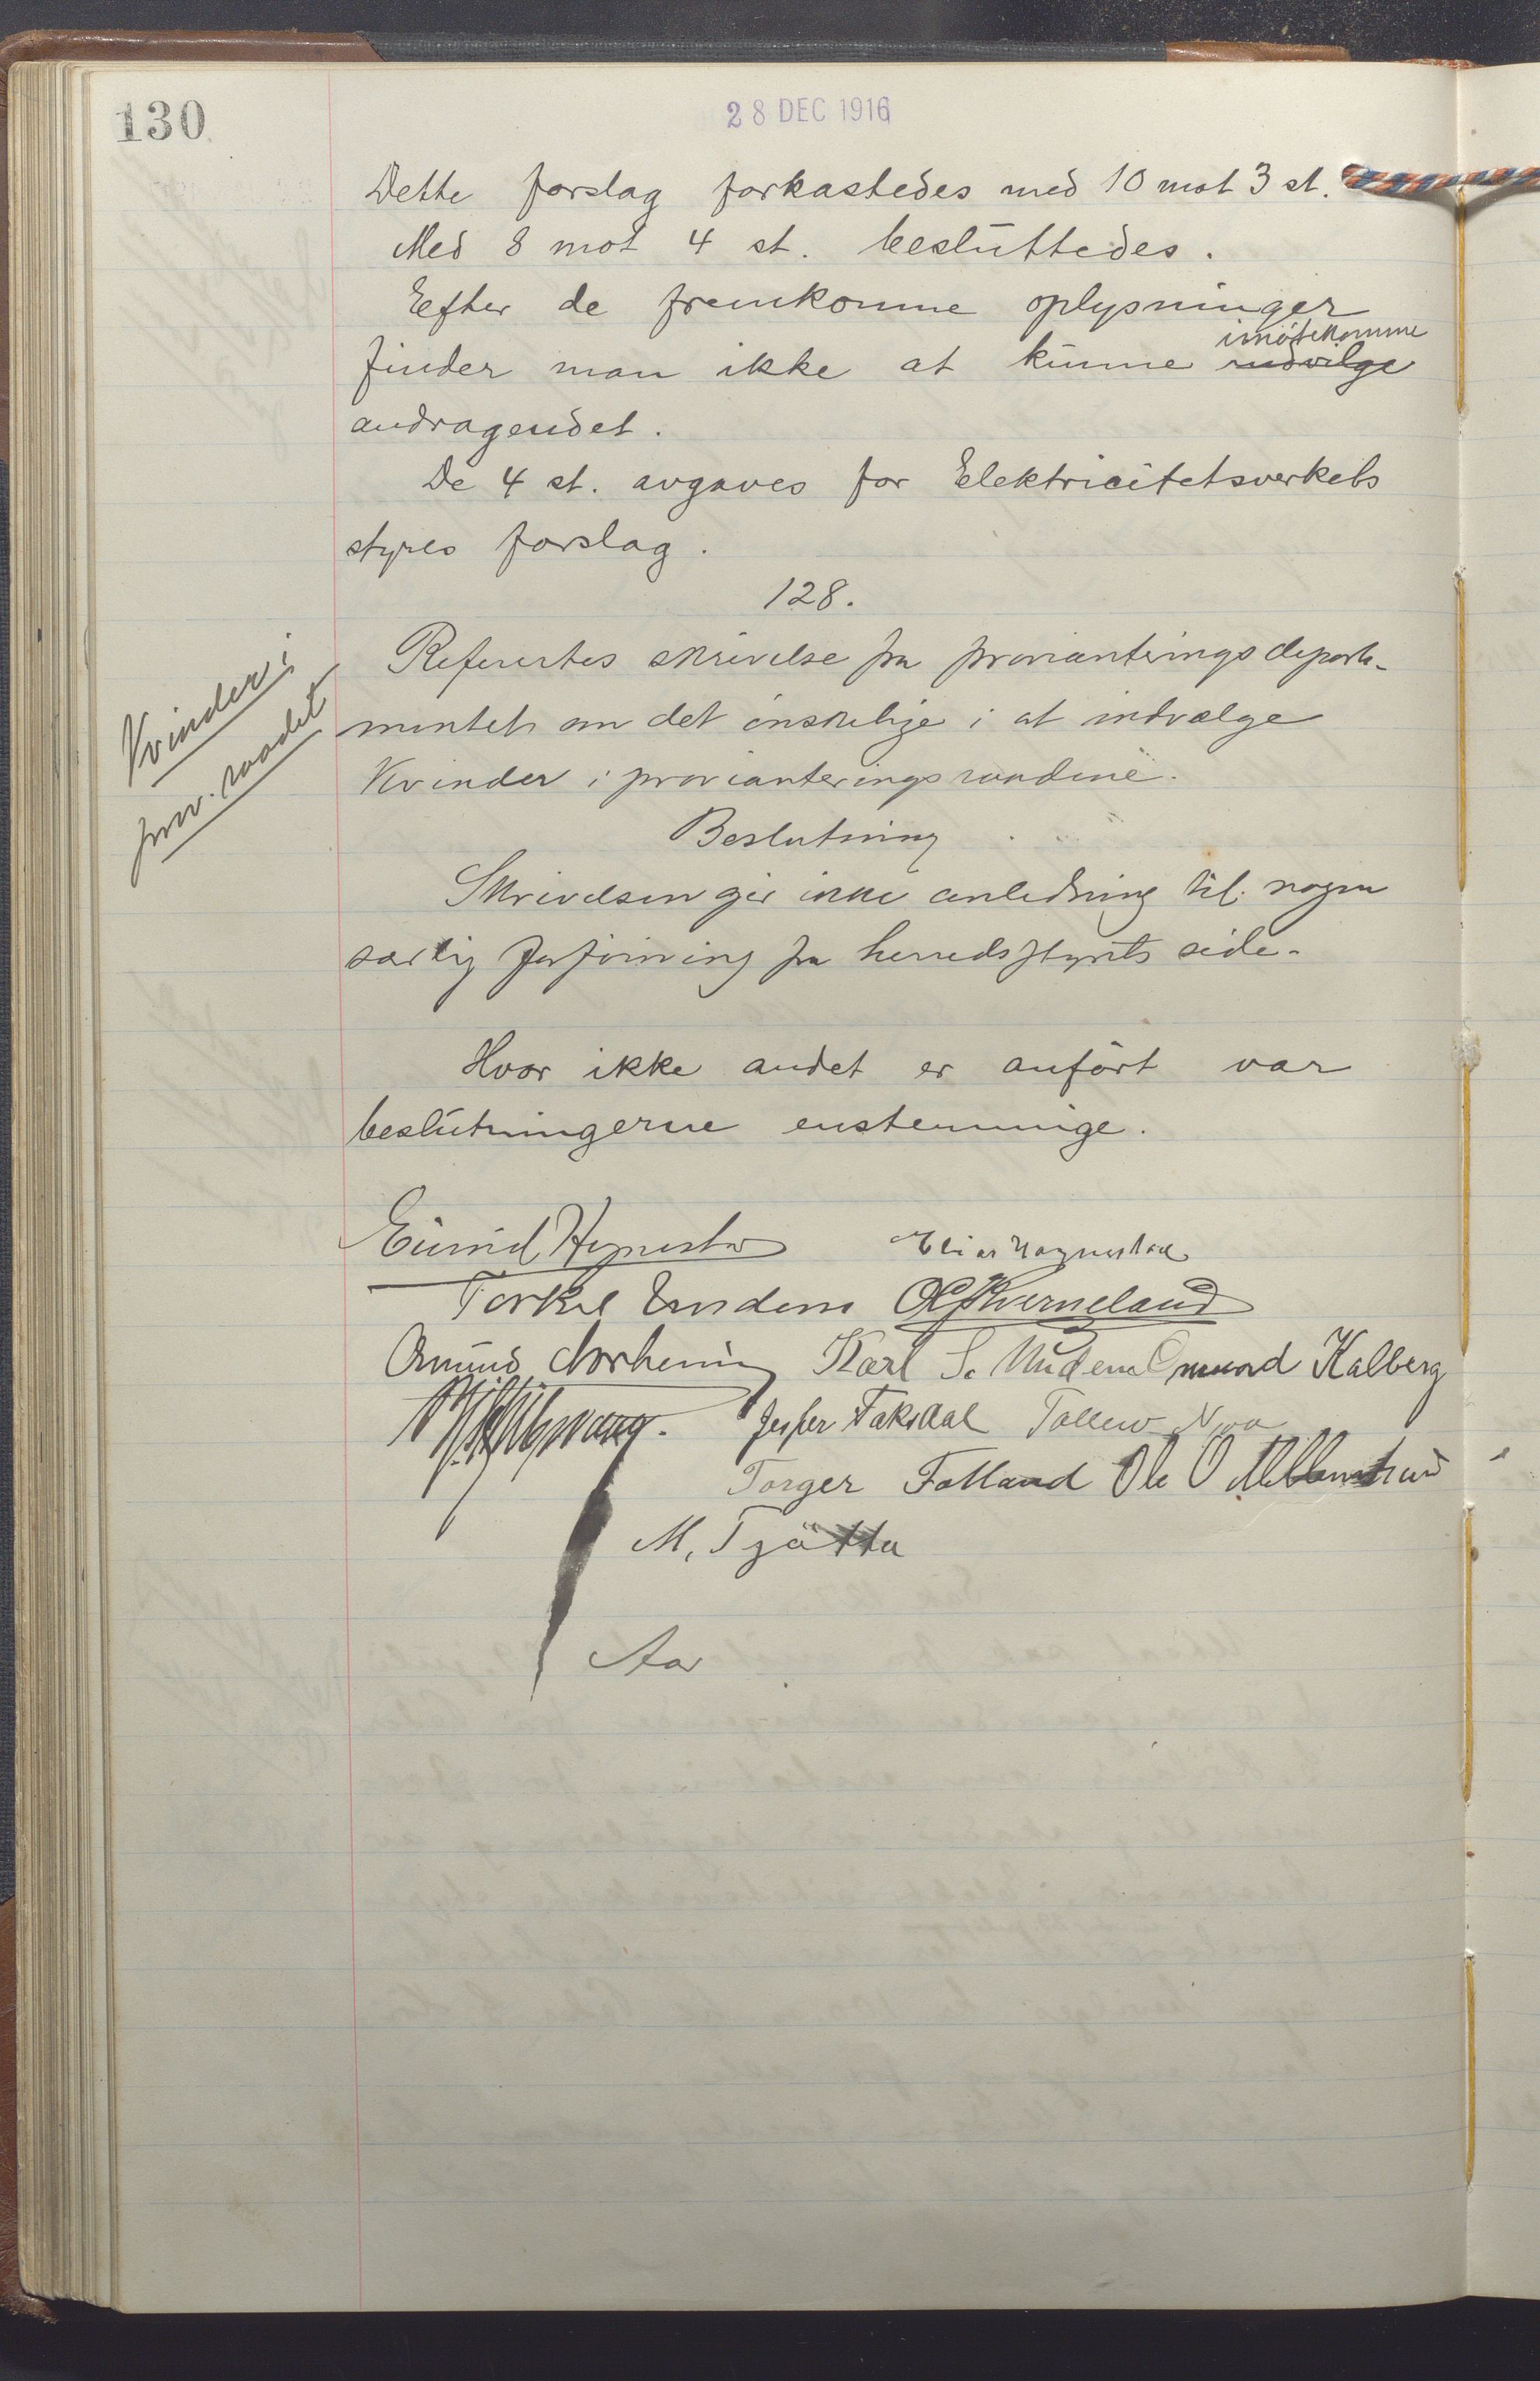 130
28 DEC 1916
Dette forslag forkastedes med 10 mot 3 st.
Med 8 mot 4 st. besluttedes.
Efter de fremkomne oplysninger
imøtekomme
finder man ikke at kunne indvilge
andragendet.
De 4 st. avgaves for Elektricitetsverkets
styres forslag.
128.
Kvinder i
prov. raadet
Refertes skrivelse fra provianteringsdeparte-
mentet om det ønskelige i at indvælge
Kvinder i provianteringsraadene.
Beslutning
Skrivelsen gir ikke anledning til nogen
særlig forføining fra herredsstyrets side.
Hvor ikke andet er anført var
beslutningerne enstemmige.
Eivind Hognestad Elias Hognestad
Torkel O Kverneland
Karl S. Undem Omund Kalberg
Jesper Taksdal Tallew Njaa
Torger Fotland Ole O
M. Tjøtta
Aar